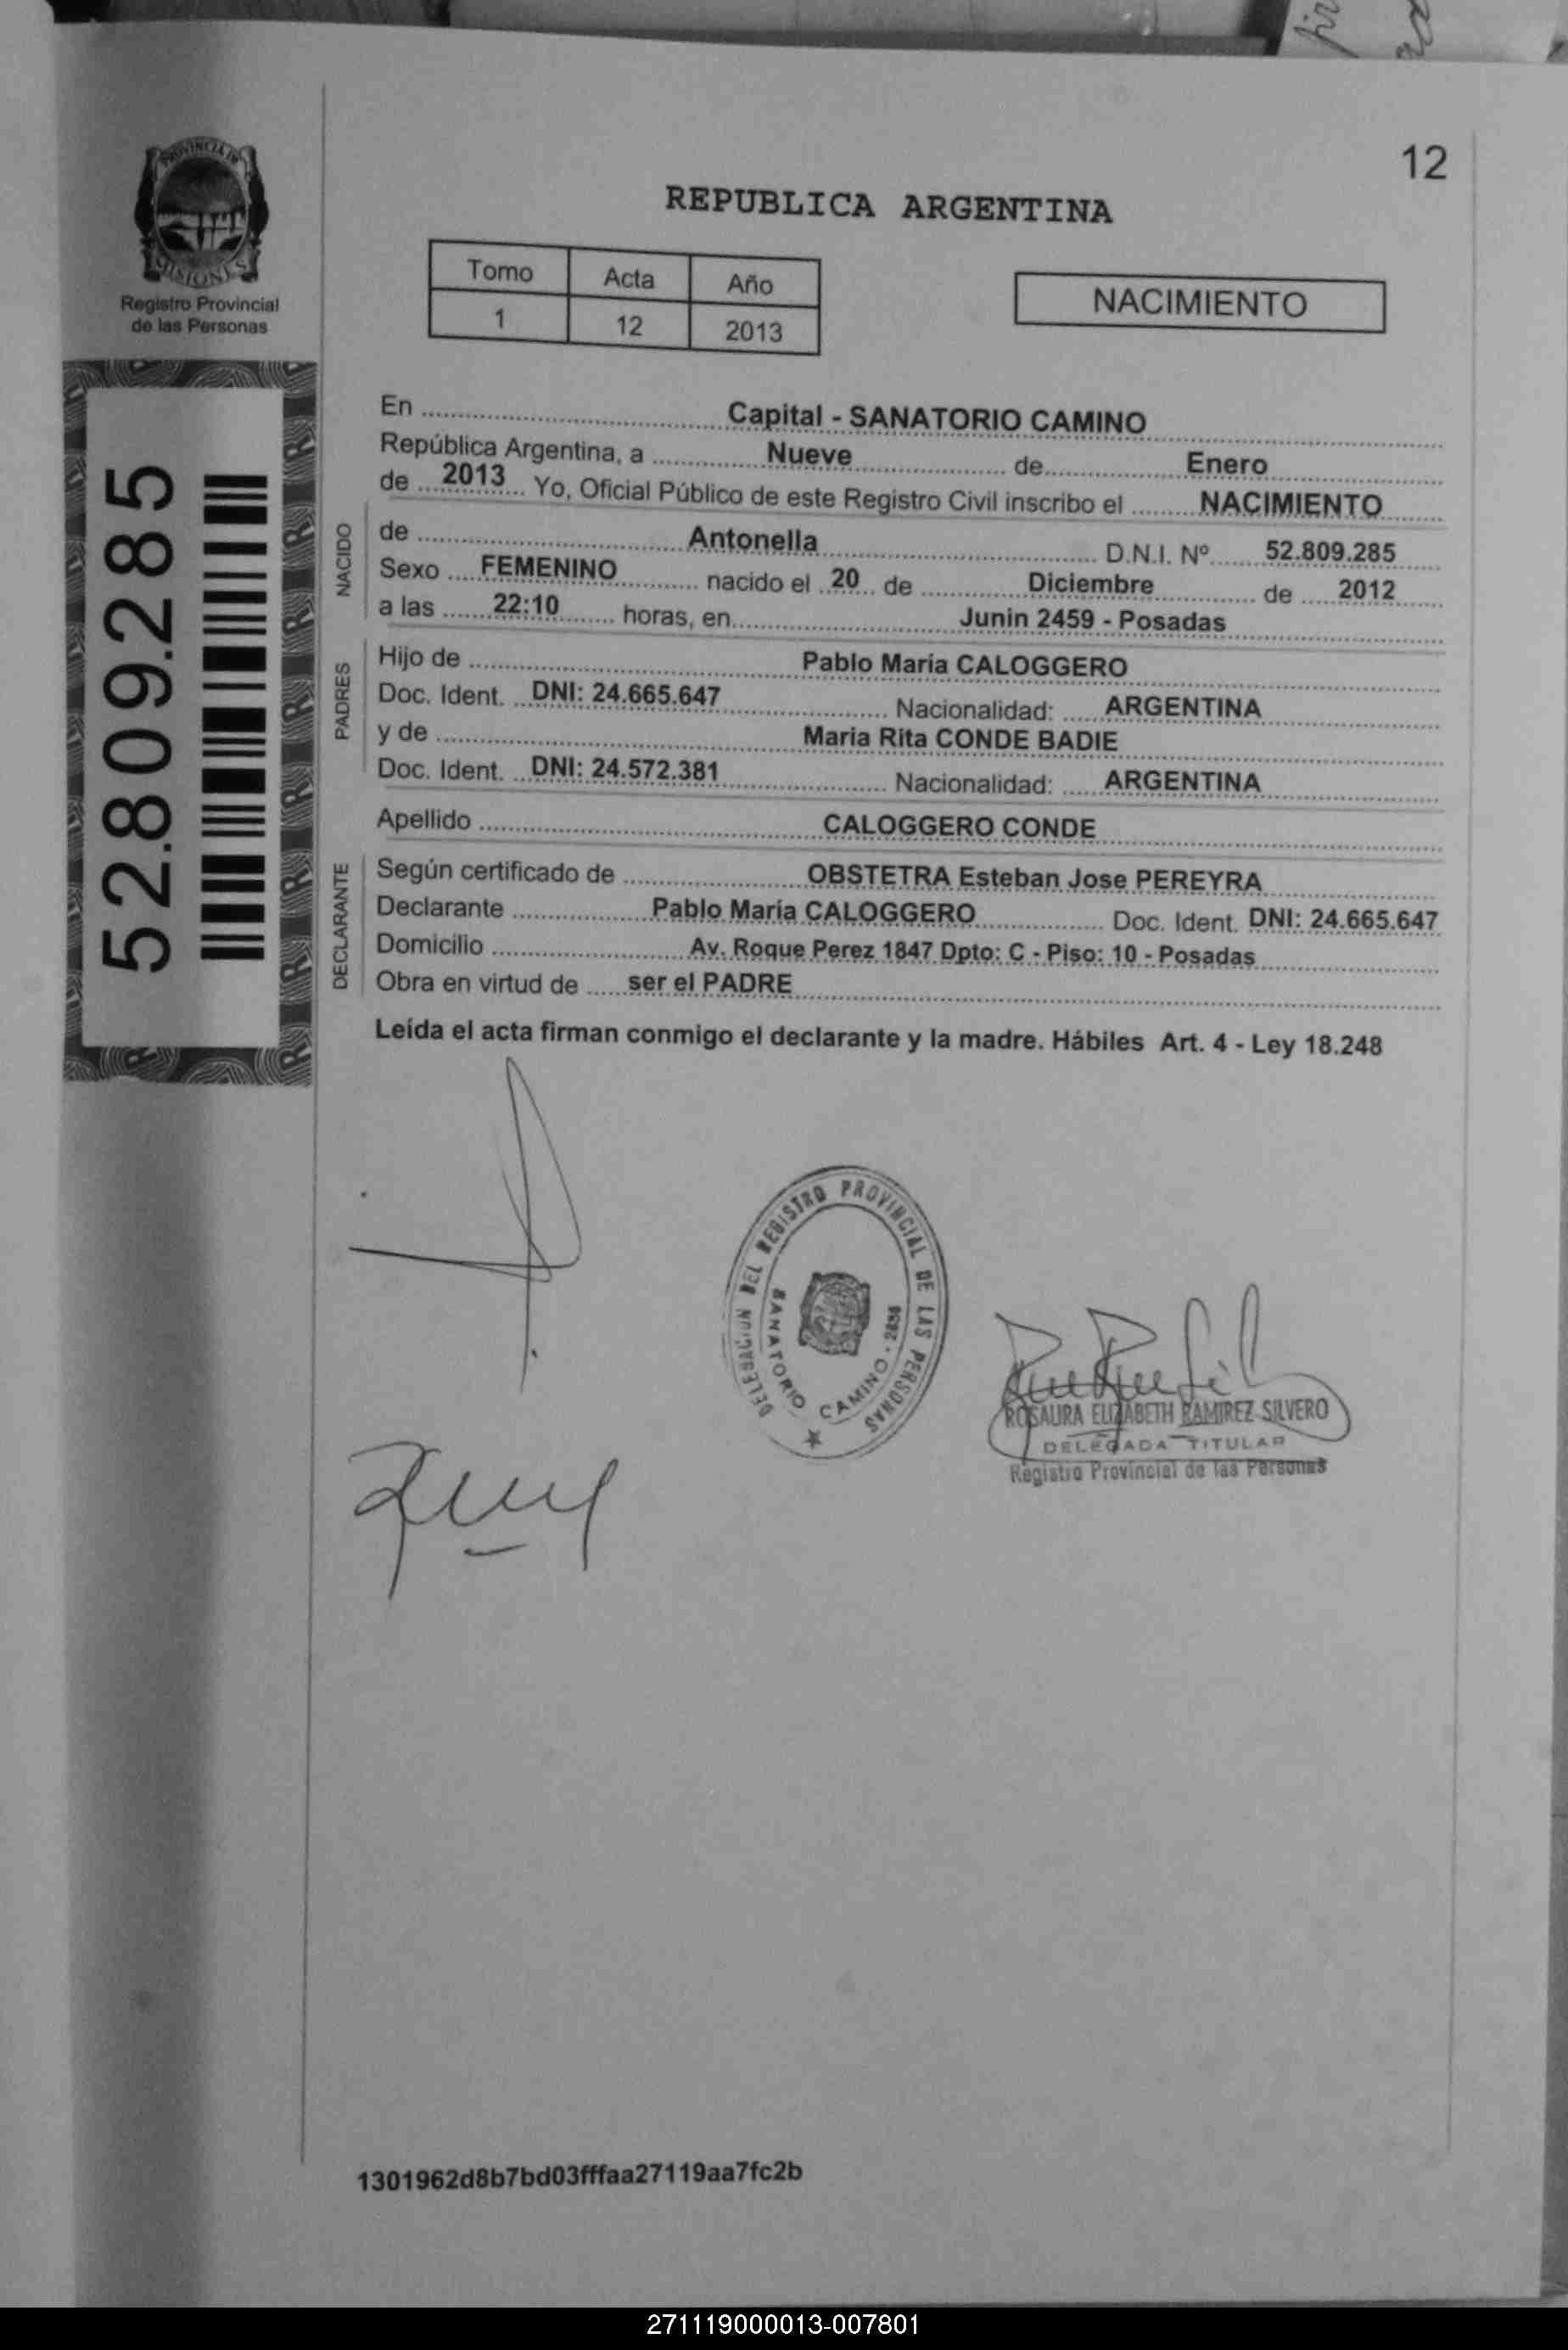 12
PROVINCIA DE
MISIONES
Registro Provincial
de las Personas
REPUBLICA ARGENTINA
Tomo Acta Año
1 12 2013
NACIMIENTO
52.809.285
En Capital - SANATORIO CAMINO
República Argentina, a Nueve de Enero
de 2013 Yo, Oficial Público de este Registro Civil inscribo el NACIMIENTO
NACIDO
de Antonella D.N.I. Nº 52.809.285
Sexo FEMENINO nacido el 20 de Diciembre de 2012
a las 22:10 horas, en Junin 2459 - Posadas
PADRES
Hijo de Pablo Maria CALOGGERO
Doc. Ident. DNI: 24.665.647 Nacionalidad: ARGENTINA
y de Maria Rita CONDE BADIE
Doc. Ident. DNI: 24.572.381 Nacionalidad: ARGENTINA
Apellido CALOGGERO CONDE
DECLARANTE
Según certificado de OBSTETRA Esteban Jose PEREYRA
Declarante Pablo Maria CALOGGERO Doc. Ident. DNI: 24.665.647
Domicilio Av. Roque Perez 1847 Dpto: C - Piso: 10 - Posadas
Obra en virtud de ser el PADRE
Leída el acta firman conmigo el declarante y la madre. Hábiles Art. 4 - Ley 18.248
DELEGACION DEL REGISTRO PROVINCIAL DE LAS PERSONAS
SANATORIO CAMINO
ROSAURA ELIZABETH RAMIREZ SILVERO
DELEGADA TITULAR
Registro Provincial de las Personas
1301962d8b7bd03fffaa27119aa7fc2b
271119000013-007801